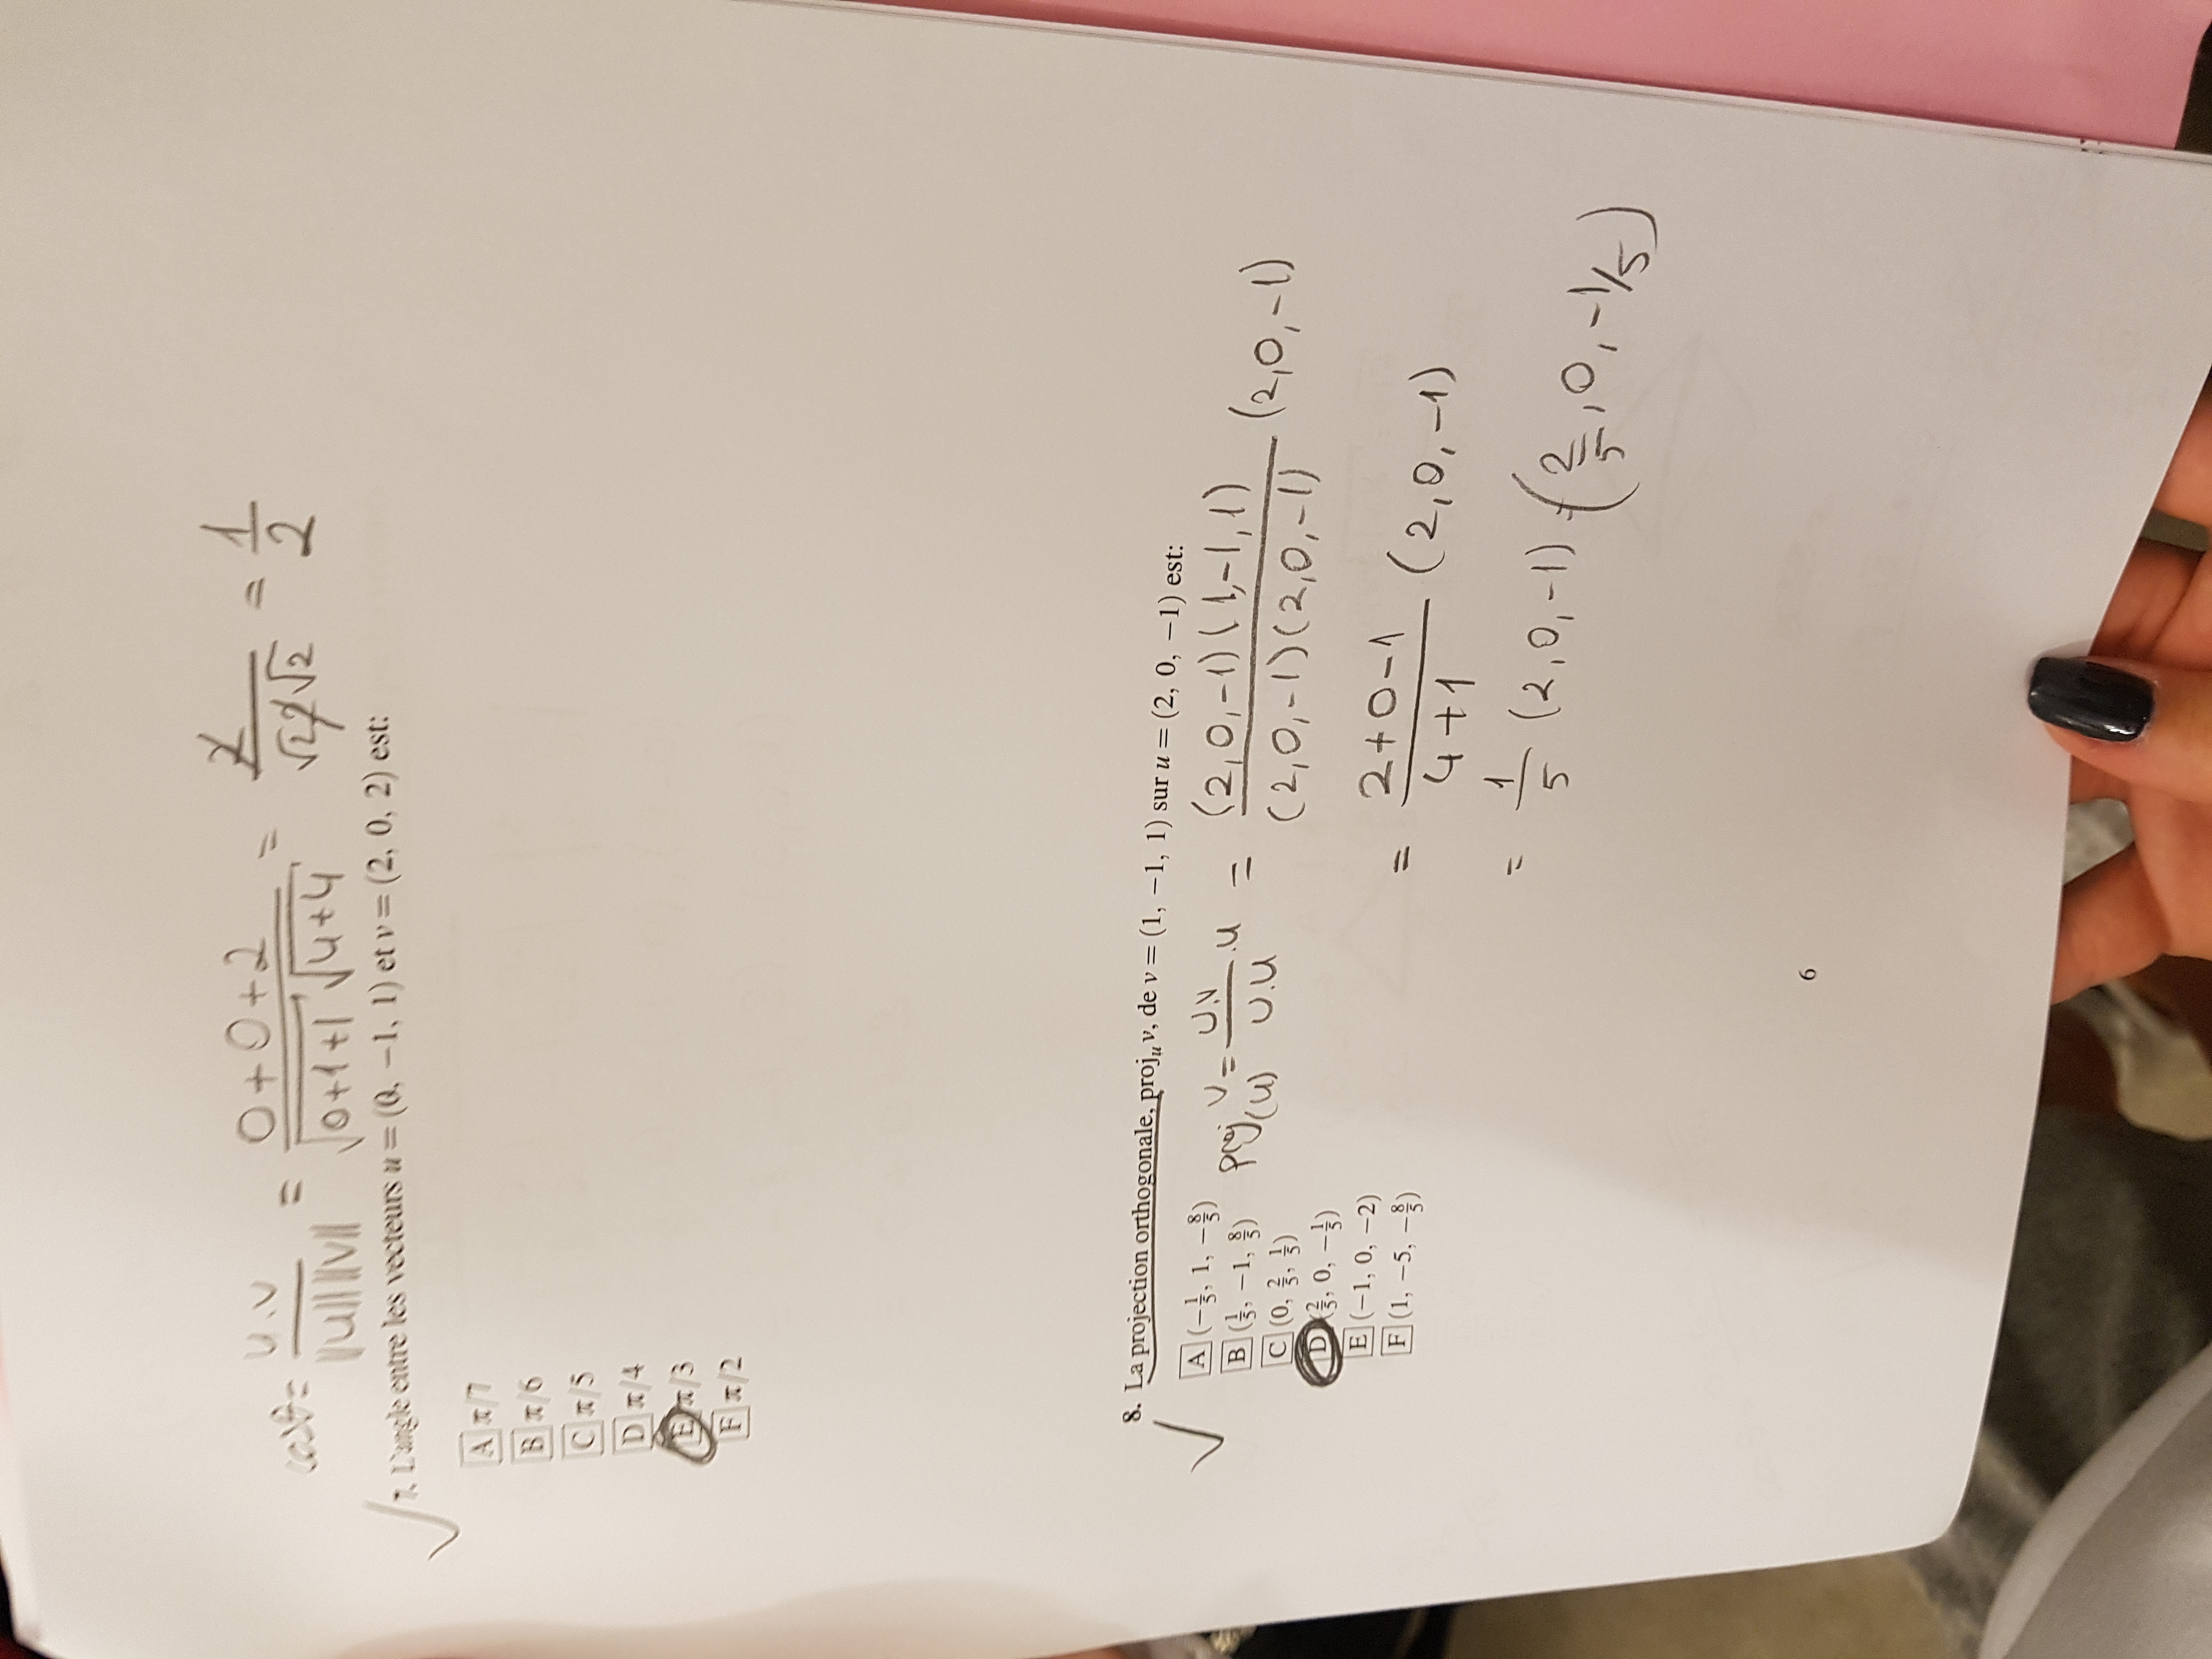 cosθ = u.v / ||u|| ||v|| = 0+0+2 / √0+1+1 √4+4 = 2 / √2 2√2 = 1/2
7. L'angle entre les vecteurs u = (0, −1, 1) et v = (2, 0, 2) est:
A π/7
B π/6
C π/5
D π/4
E π/3
F π/2
8. La projection orthogonale, proj_u v, de v = (1, −1, 1) sur u = (2, 0, −1) est:
A (−1/5, 1, −8/5)
B (1/5, −1, 8/5)
C (0, 2/5, 1/5)
D (2/5, 0, −1/5)
E (−1, 0, −2)
F (1, −5, −8/5)
proj(u) v = u.v / u.u .u = (2,0,-1)(1,-1,1) / (2,0,-1)(2,0,-1) (2,0,-1)
= 2+0-1 / 4+1 (2,0,-1)
= 1/5 (2,0,-1) = (2/5, 0, -1/5)
6